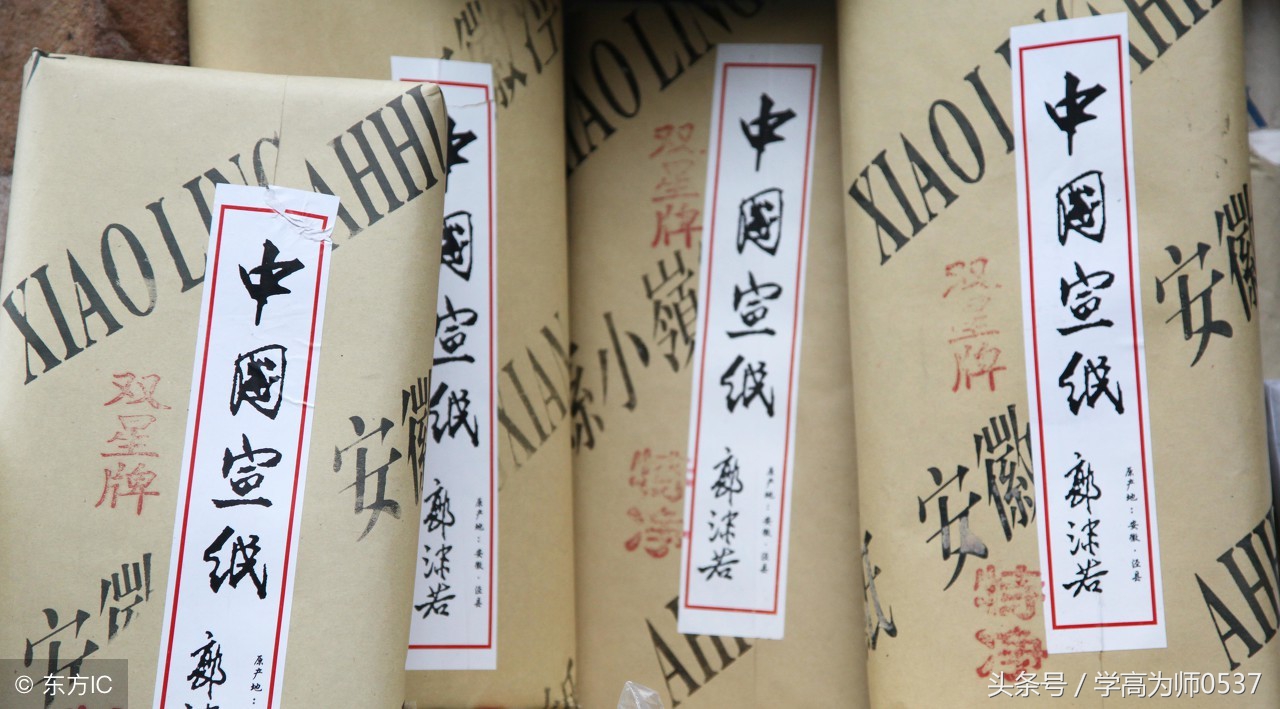 XIAOLING
AHHI
双星牌
安徽
安徽
中国宣纸
郭沫
原产地：
中国宣纸
郭沫若
原产地：安徽·泾县
XIAN
XIAOLING
双星牌
小嶺
特净
中国宣纸
郭沫若
原产地：安徽·泾县
AHH
XIAOLING
AHH
双星牌
安徽
安徽
特净
中国宣纸
郭沫若
原产地：安徽·泾县
AHH
© 东方IC
头条号 / 学高为师0537